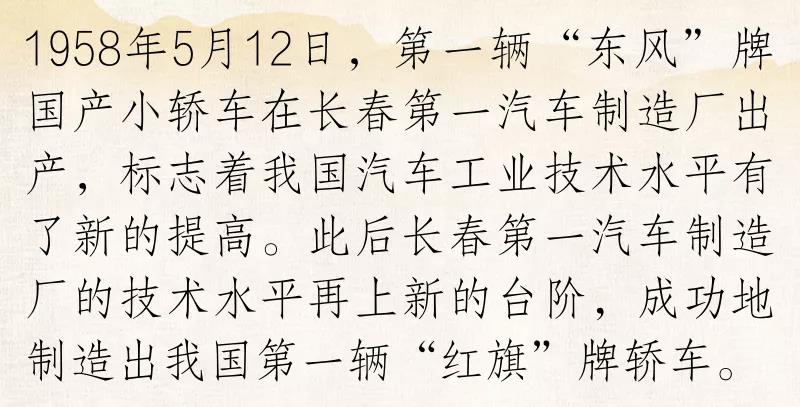 1958年5月12日，第一辆“东风”牌
国产小轿车在长春第一汽车制造厂出
产，标志着我国汽车工业技术水平有
了新的提高。此后长春第一汽车制造
厂的技术水平再上新的台阶，成功地
制造出我国第一辆“红旗”牌轿车。